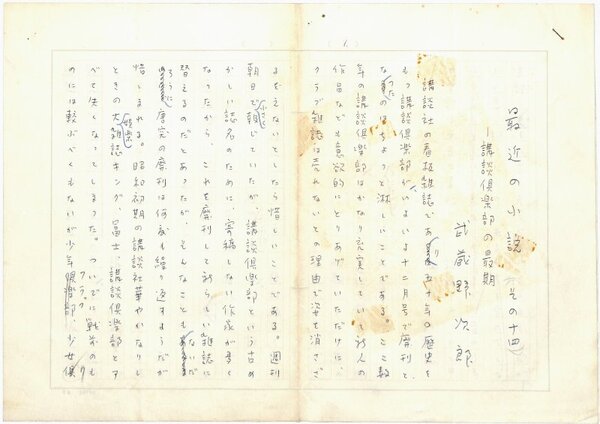 最近の小説(その十四)
―講談倶楽部の最期
武蔵野次郎
講談社の看板雑誌であり五十年の歴史を
もつ講談倶楽部がいよいよ十二月号で廃刊と
なつたのはちょっと淋しいことである。ここ数
年の講談倶楽部はかなり充実していて新人の
作品なども意欲的にとりあげていただけに、
クラブ雑誌は売れないとの理由で姿を消さざ
るをえないとしたら惜しいことである。週刊
朝日で報じていたが、講談倶楽部という古め
かしい誌名のために、寄稿しない作家が多く
なったから、これを廃刊して新らしい雑誌に
替えるのだとあったが、そんなこともないだ
ろうに廃刊は何度も繰り返すようだが
惜しまれる。昭和初期の講談社華やかなりし
ときの大雑誌キング、富士、講談倶楽部とす
べて失くなってしまった。ついでに戦前のも
のには較ぶべくもないが少年倶楽部、少女倶
クラブ